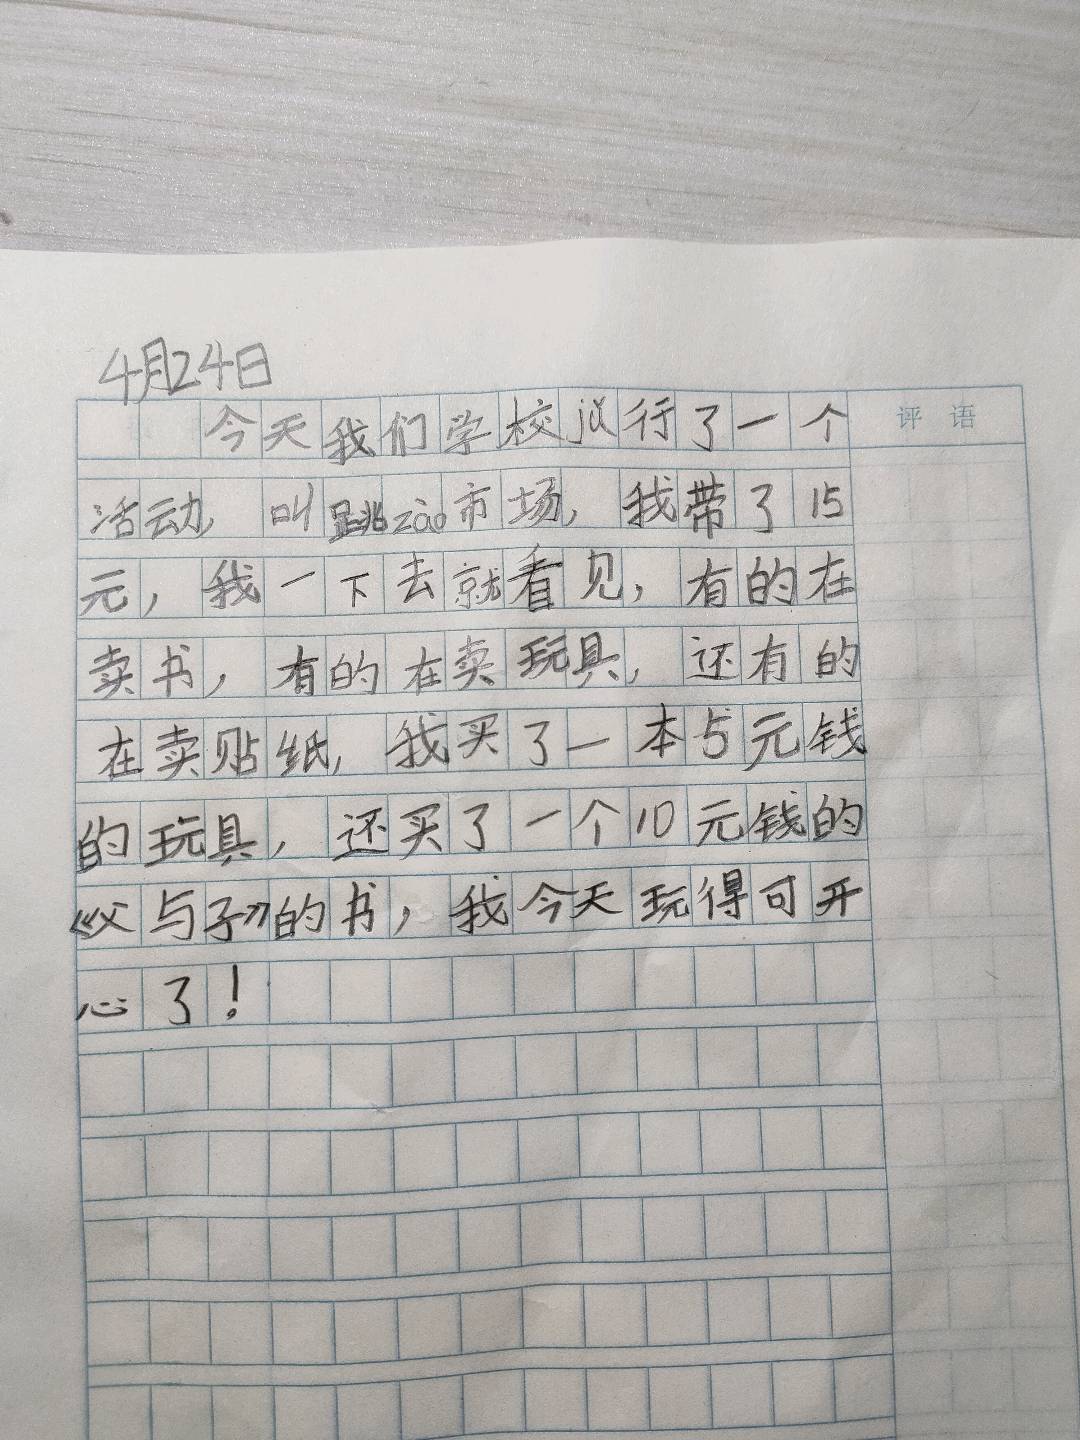 4月24日
今天我们学校jǔ行了一个
评语
活动,叫跳zǎo市场,我带了15
元,我一下去就看见,有的在
卖书,有的在卖玩具,还有的
在卖贴纸,我买了一本5元钱
的玩具,还买了一个10元钱的
《父与子》的书,我今天玩得可开
心了!